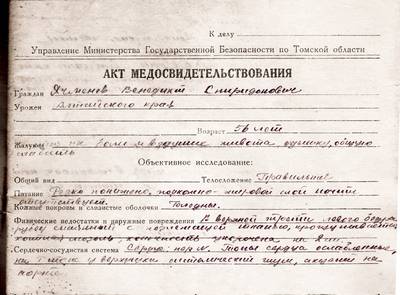 К делу
Управление Министерства Государственной Безопасности по Томской области
АКТ МЕДОСВИДЕТЕЛЬСТВОВАНИЯ
Гражданин Ячменов Венедикт Спиридонович
Урожен Алтайского края
Возраст 56 лет
Жалующ на боли в верхушке живота одышку, общую
слабость
Объективное исследование:
Общий вид Телосложение Правильное
Питание Резко понижено, подкожно-жировой слой почти
отсутствует.
Кожные покровы и слизистые оболочки Бледны.
Физические недостатки и наружные повреждения В верхней трети левого бедра
рубец спаянный с подлежащей тканью, прощупывается
костная мозоль, конечность укорочена на
Сердечно-сосудистая система Сердце: Тоны сердца ослабленные,
на у верхушки систолический шум, акцент на
аорте.